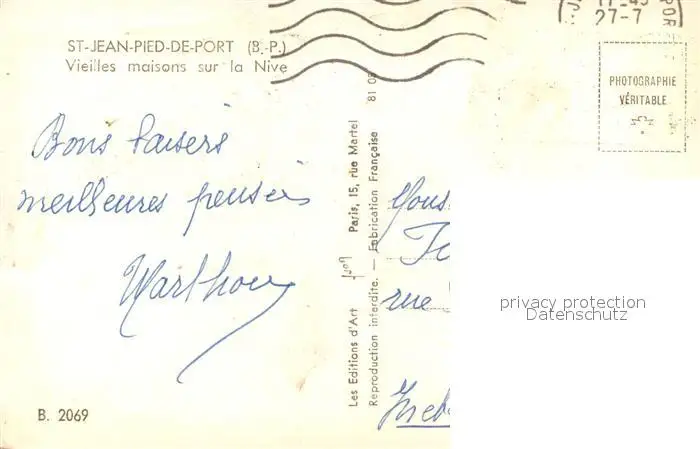 ST-JEAN-PIED-DE-PORT (B.-P.)
Vieilles maisons sur la Nive
17-45
27-7
POR
PHOTOGRAPHIE
VÉRITABLE
Bons baisers
meilleures pensées
Les Editions d'Art Paris, 15, rue Martel 81 0
Reproduction interdite. — Fabrication Française
rue
privacy protection
Datenschutz
B. 2069